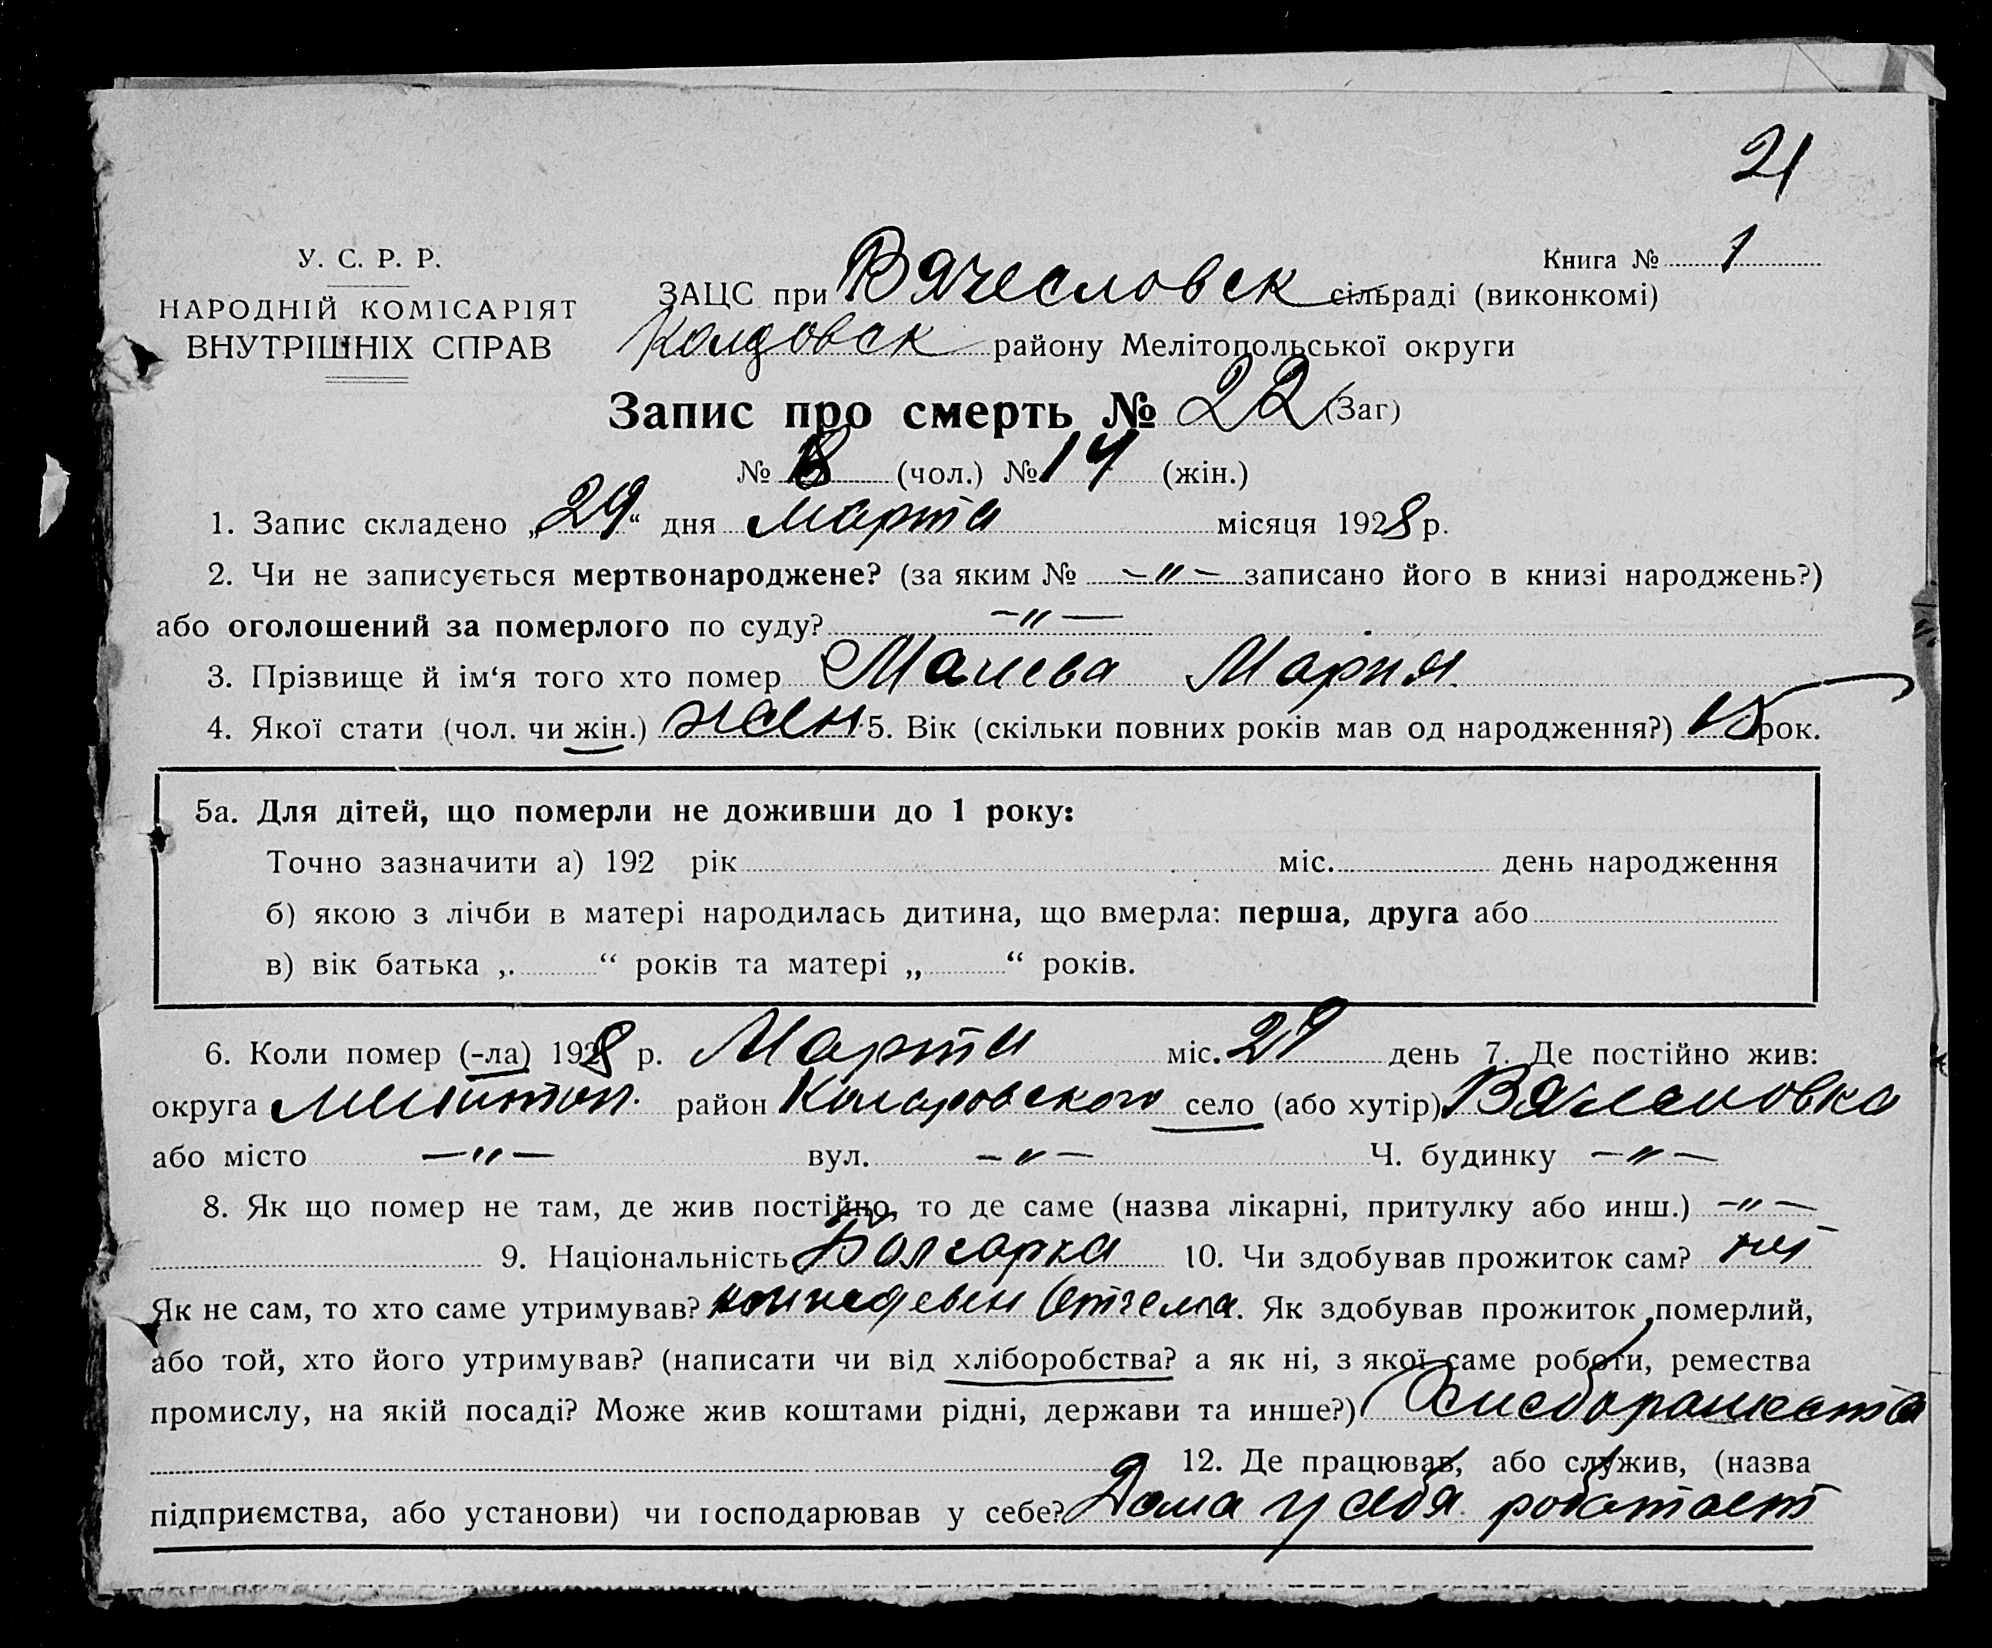 21
У. С. Р. Р.
НАРОДНІЙ КОМІСАРІЯТ
ВНУТРІШНІХ СПРАВ
Книга № 1
ЗАЦС при Вячесловск сільраді (виконкомі)
району Мелітопольської округи
Запис про смерть № 22 (Заг)
№ 8 (чол.) № 14 (жін.)
1. Запис складено „29“ дня Марта місяця 1928 р.
2. Чи не записується мертвонароджене? (за яким № —〃— записано його в книзі народжень?)
або оголошений за померлого по суду? —〃—
3. Прізвище й ім‘я того хто помер Малева Мария
4. Якої стати (чол. чи жін.) жен 5. Вік (скільки повних років мав од народження?) 15 рок.
5а. Для дітей, що померли не доживши до 1 року:
Точно зазначити а) 192 рік міс. день народження
б) якою з лічби в матері народилась дитина, що вмерла: перша, друга або
в) вік батька „ “ років та матері „ “ років.
6. Коли помер (-ла) 1928 р. Марта міс. 29 день 7. Де постійно жив:
округа район Коларовского село (або хутір)
або місто —〃— вул. —〃— Ч. будинку —〃—
8. Як що помер не там, де жив постійно, то де саме (назва лікарні, притулку або инш.) —〃—
9. Національність Болгарка 10. Чи здобував прожиток сам?
Як не сам, то хто саме утримував? Як здобував прожиток померлий,
або той, хто його утримував? (написати чи від хліборобства? а як ні, з якої саме роботи, ремества
промислу, на якій посаді? Може жив коштами рідні, держави та инше?)
12. Де працював, або служив, (назва
підприємства, або установи) чи господарював у себе? Дома у себя работает